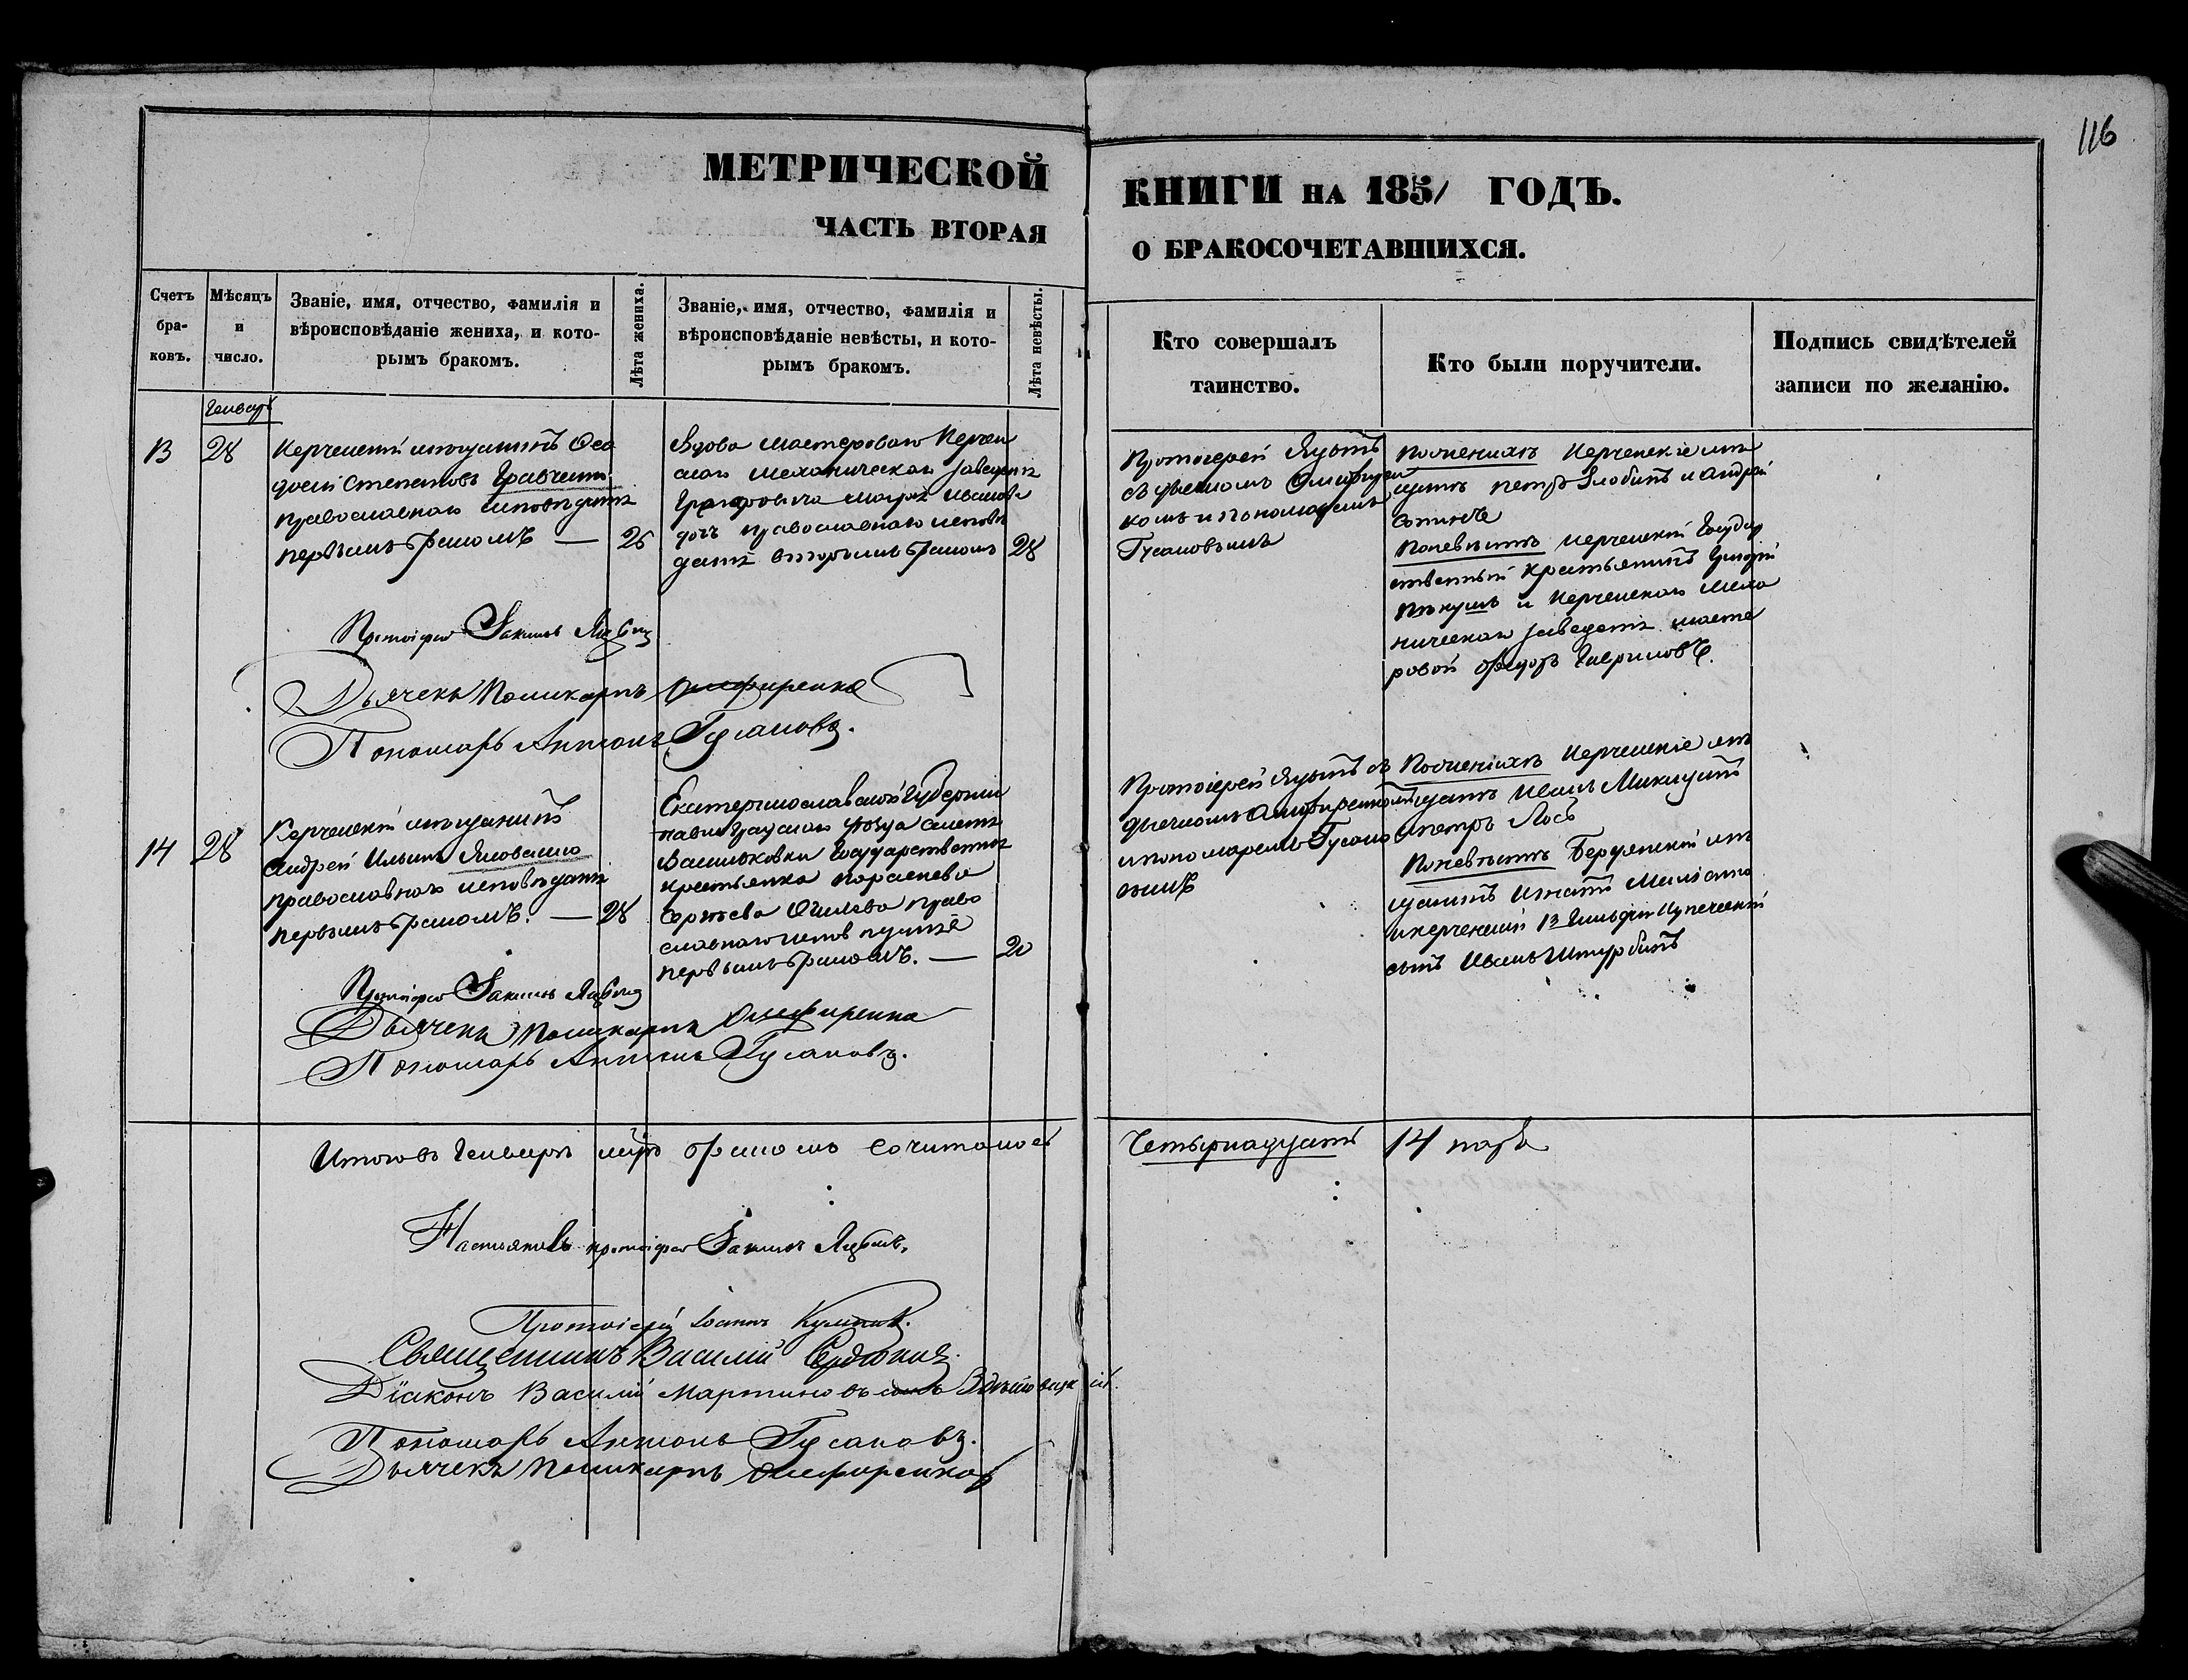 116
МЕТРИЧЕСКОЙ КНИГИ НА 1851 ГОДЪ.
ЧАСТЬ ВТОРАЯ О БРАКОСОЧЕТАВШИХСЯ.
Счетъ бра-ковъ.
Мѣсяцъ и число.
Званіе, имя, отчество, фамилія и
вѣроисповѣданіе жениха, и кото-
рымъ бракомъ.
Лѣта жениха.
Званіе, имя, отчество, фамилія и
вѣроисповѣданіе невѣсты, и кото-
рымъ бракомъ.
Лѣта невѣсты.
Кто совершалъ
таинство.
Кто были поручители.
Подпись свидѣтелей
записи по желанію.
Генварь
13
28
Керченскій мѣщанинъ Ѳео
досій Степановъ
православнаго исповѣданія
первымъ бракомъ — 26
Вдова мастероваго Керчен
скаго механическаго заведенія
Марія Иванова
дочь православнаго исповѣ
данія вторымъ бракомъ 28
Протоіерей
съ дьячкомъ Олифирен
комъ и пономаремъ
Гусановымъ
По женихѣ Керченскіе мѣ
щане Петръ Злобинъ и Андрей
По невѣстѣ Керченскій Государ
ственный крестьянинъ Григорій
и Керченскаго меха
ническаго заведенія масте
ровой Ѳедоръ Гавриловъ.
Протоіерей
Дьячекъ Поликарпъ Олефиренко
Пономарь Антонъ Гусановъ.
14
28
Керченскій мѣщанинъ
Андрей Ильинъ
православнаго исповѣданія
первымъ бракомъ. — 28
Екатеринославской Губерніи
Павлоградскаго уѣзда селенія
Васильковки Государственная
крестьянка Параскева
Сергѣева право
славнаго исповѣданія
первымъ бракомъ. — 20
Протоіерей съ
дьячкомъ Олифиренкомъ
и пономаремъ Гусано
вымъ
По женихѣ Керченскіе мѣ
щане Иванъ
и Петръ Лось
По невѣстѣ Бердянскій мѣ
щанинъ Игнатій
и Керченскій 3й Гильдіи Купеческій
сынъ Иванъ Штурбинъ
Протоіерей
Дьячекъ Поликарпъ Олефиренко
Пономарь Антонъ Гусановъ.
Итого въ Генварѣ мцѣ бракомъ сочиталось Четырнадцать 14 паръ
Настоятель протоіерей
Протоіерей Іоаннъ
Священникъ Василій Сердюковъ
Діаконъ Василій Мартиновъ сынъ
Пономарь Антонъ Гусановъ.
Дьячекъ Поликарпъ Олефиренковъ